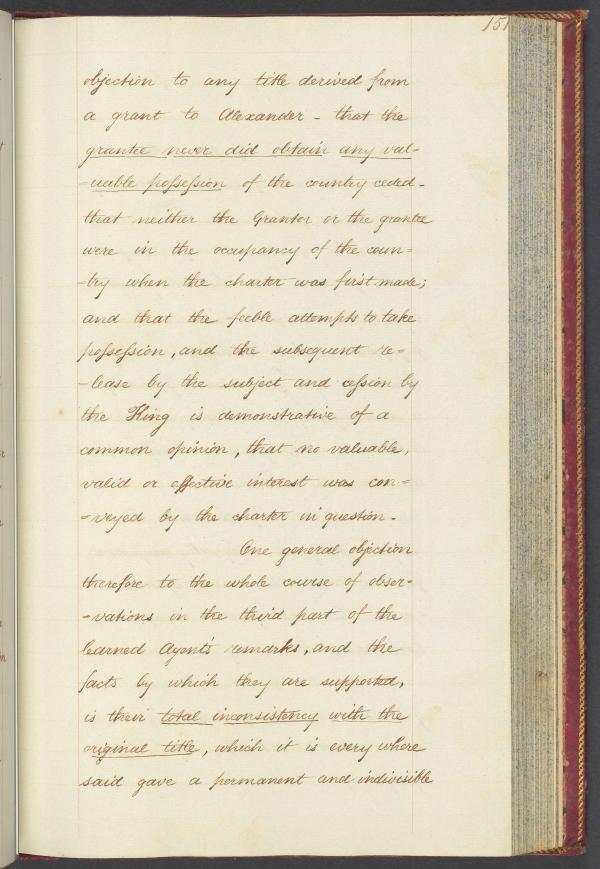 151
objection to any title derived from
a grant to Alexander - that the
grantee never did obtain any val-
-uable possession of the country ceded -
that neither the Grantor or the grantee
were in the occupancy of the coun=
-try when the charter was first made;
and that the feeble attempts to take
possession, and the subsequent re=
-lease by the subject and cession by
the King is demonstrative of a
common opinion, that no valuable,
valid or effective interest was con=
=veyed by the charter in question -
One general objection
therefore to the whole course of obser-
-vations in the third part of the
learned Agent's remarks, and the
facts by which they are supported,
is their total inconsistency with the
original title, which it is every where
said gave a permanent and indivisible